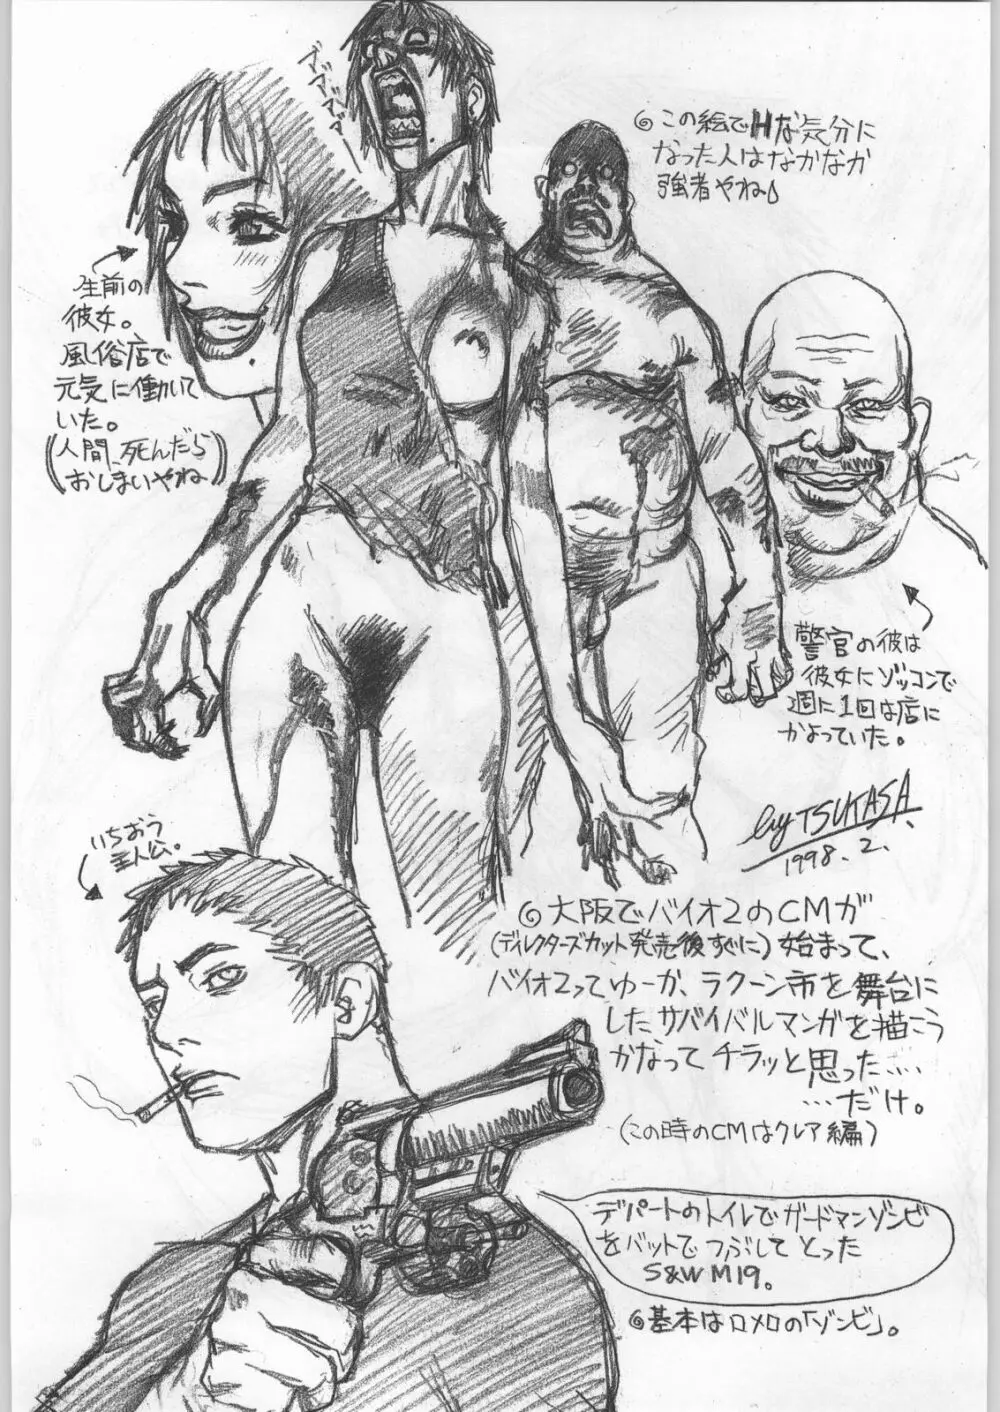 ブァァァァァ
◎この絵でHな気分に
なった人はなかなか
強者やね♪
生前の
彼女。
風俗店で
元気に働いて
いた。
(人間、死んだら
おしまいやね)
警官の彼は
彼女にゾッコンで
週に1回は店に
かよっていた。
by TSUKASA.
1998.2.
いちおう
主人公。
◎大阪でバイオ2のCMが
(ディレクターズカット発売後すぐに)始まって、
バイオ2ってゆーか、ラクーン市を舞台に
したサバイバルマンガを描こう
かなってチラッと思った……
……だけ。
(この時のCMはクレア編)
デパートのトイレでガードマンゾンビ
をバットでつぶしてとった
S&W M19。
◎基本はロメロの「ゾンビ」。